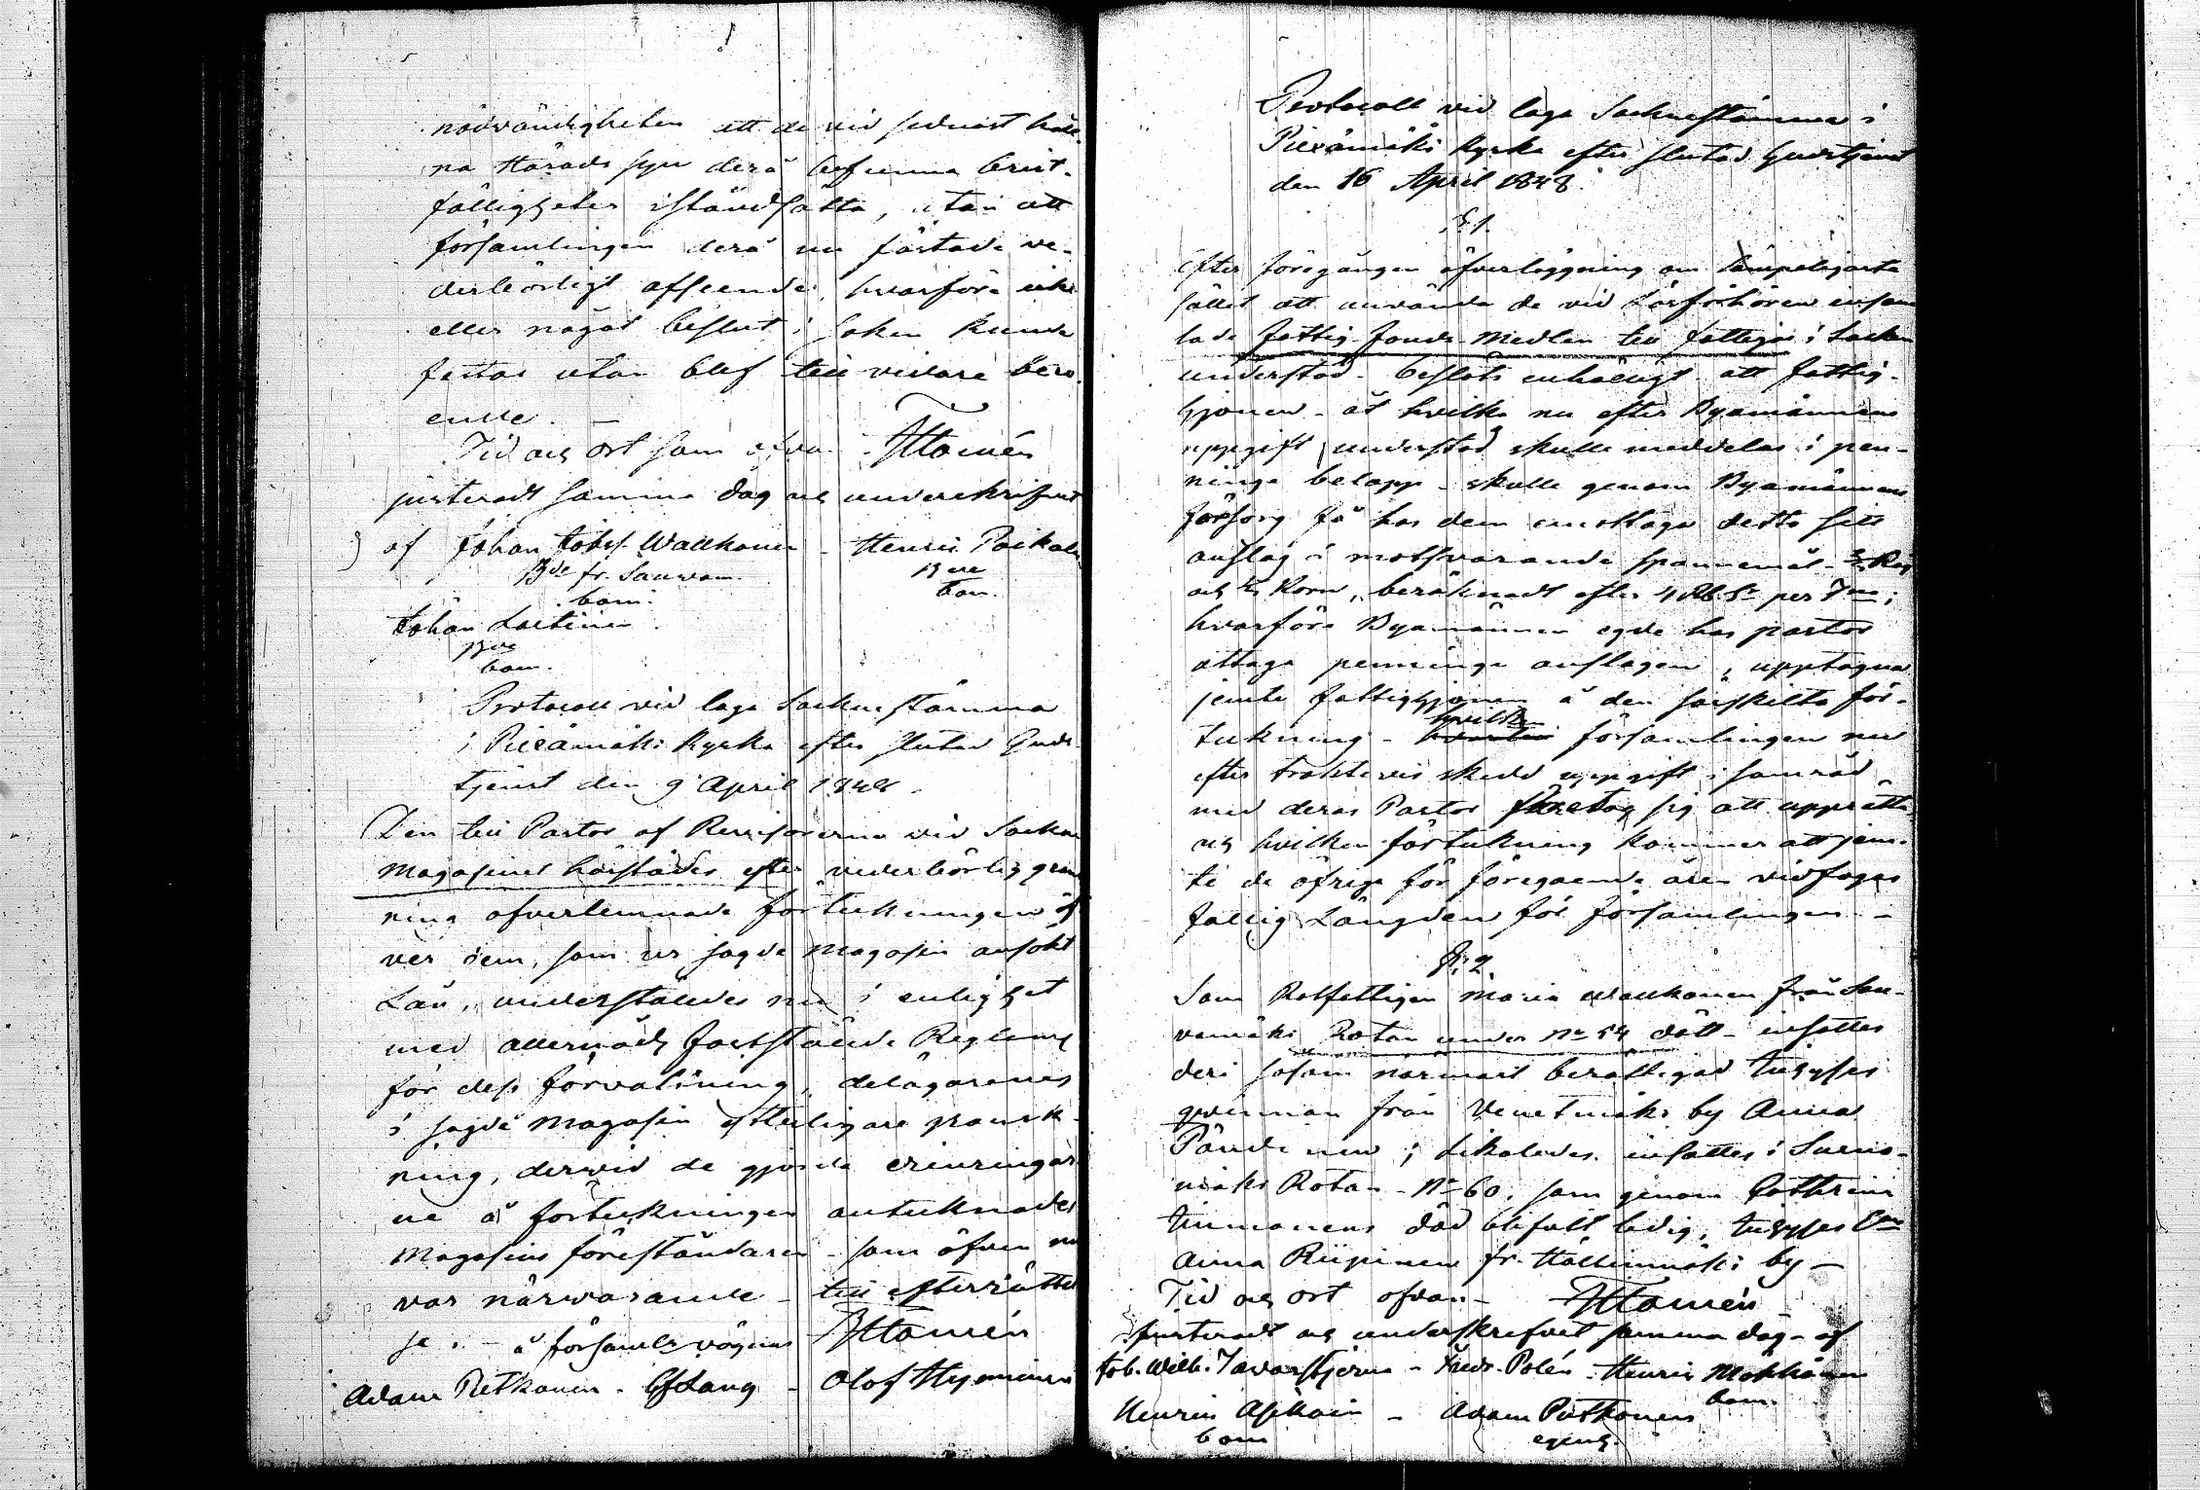 nödvändigheten att de vid sednast håll-
na Härads syn derå befunna brist-
fälligheter iståndsätta, utan att
församlingen derå nu fästade ve-
derbörligt afseende, hvarföre icke
eller något beslut i saken kunde
fattas utan blef till vidare bero-
ende. —
Tid och ort som ofvan
justeradt samma dag och underskrifvet
af Johan Wallkonen - Henric
Bde fr.
bom. bom.
Johan Laitinen
bom.
Protocoll vid laga Sockne stämma
i Piexämäki kyrka efter slutad Guds
tjenst den 9 April 1848.
Den till Pastor af Revisorerna vid Socken
Magasinet härstädes efter vederbörlig gran
ning öfverlemnade förteckningen öf
ver dem, som ur sagde Magasin ansökt
Lån, underställdes nu i enlighet
med allernåd. fastställde Reglem.
för dess förvaltning, delägarenes
i sagde Magasin ytterligare gransk-
ning, dervid de gjorda erinringar
ne å förteckningen antecknades
Magasins föreståndaren - som äfven nu
var närvarande - till efterrättel
se. - å församls vägnar
Adam Putkonen - Olof Hyvönen
Protocoll vid laga Sockne stämma i
Piexämäki kyrka efter slutad Gudstjenst
den 16 April 1848.
§. 1.
Efter föregången öfverläggning om lämpeligaste
sättet att använda de vid Läsförhören insam
lade fattig fonds medlen till fattigas i Socken
understöd - beslöts enhälligt att fattig-
hjonen - åt hvilka nu efter Byamännens
uppgift understöd skulle meddelas i pen-
ninge belopp - skulle genom Byamännens
försorg få hos dem emottaga detta sitt
anslag i motsvarande spannemål - Råg
och Korn, beräknadt efter 4 Rb Sr per
hvarföre Byamännen egde hos pastor
uttaga penninge anslagen, upptagna
jemte fattighjonen å den särskilta för-
teckning - hvilken församlingen nu
efter traktvis skedd uppgift i samråd
med deras Pastor företog sig att upprätta
och hvilken förteckning kommer att jem-
te de öfriga för föregående åren vidfogas
fattig Längden för församlingen -
§: 2
Som Rotfattigen Maria Wallkonen från Sau-
vamäki Rotan under No 54 dödt - insattes
deri såsom närmast berättigad inhyses
qvinnan från Venetmäki by Anna
Pändinen; likaledes insattes i
mäki Rotan - No 60, som genom Cathrina
Immonens död blifvit ledig, inhyses
Anna Riipinen fr. by -
Tid och ort ofvan -
Justeradt och underskrefvet samma dag - af
Job. Wilh. Tavaststjerna - Fredr. Polén - Henric
bom.
Henric Asikain - Adam Putkonen
bom eghg.